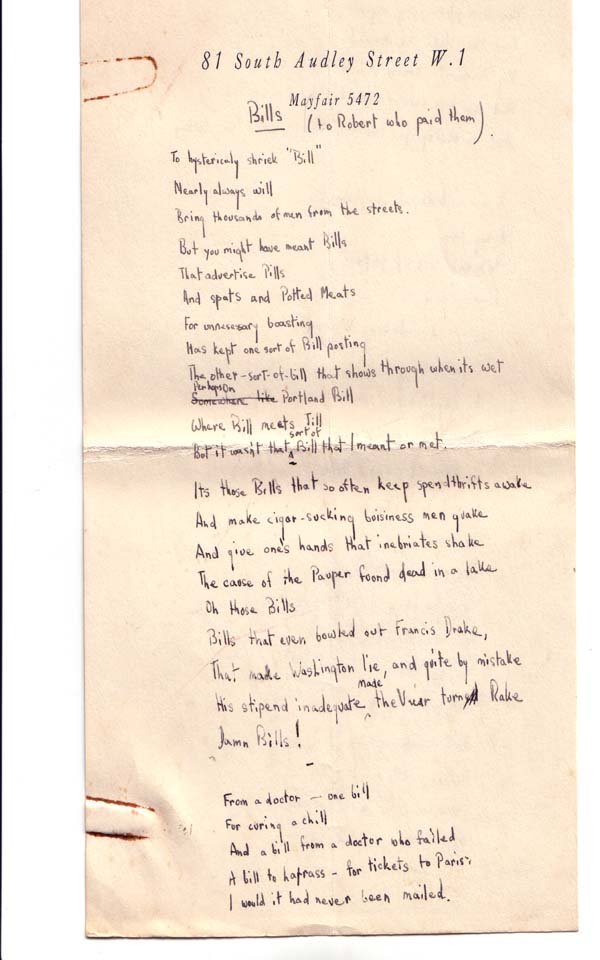 81 South Audley Street W.1
Mayfair 5472
Bills (to Robert who paid them).
To hystericuly shriek "Bill"
Nearly always will
Bring thousands of men from the streets.
But you might have meant Bills
That advertise Pills
And spats and Potted Meats
For unnesesary boasting
Has kept one sort of Bill posting
The other-sort-of-bill that shows through when its wet
Perhaps On
Somewhere like Portland Bill
Where Bill meets Jill
But it wasn't that sort of Bill that I meant or met.
Its those Bills that so often keep spendthrifts awake
And make cigar-sucking buisiness men quake
And give one's hands that inebriates shake
The cause of the Pauper found dead in a lake
Oh those Bills
Bills that even bowled out Francis Drake,
That made Washington lie, and quite by mistake
His stipend inadequate made, the Vicar turns Rake
Damn Bills!
From a doctor — one bill
For curing a chill
And a bill from a doctor who failed
A bill to harrass - for tickets to Paris
I would it had never been mailed.